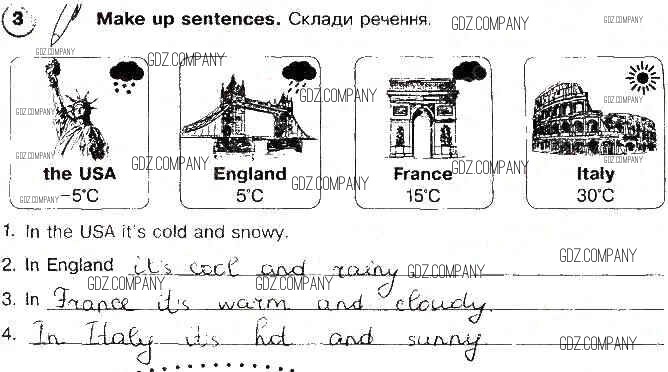 3 Make up sentences. Склади речення.
GDZ.COMPANY GDZ.COMPANY
GDZ.COMPANY
GDZ.COMPANY
GDZ.COMPANY GDZ.COMPANY GDZ.COMPANY
GDZ.COMPANY
GDZ.COMPANY
GDZ.COMPANY GDZ.COMPANY GDZ.COMPANY
the USA England France Italy
GDZ.COMPANY GDZ.COMPANY
-5°C 5°C 15°C 30°C
1. In the USA it's cold and snowy.
GDZ.COMPANY
2. In England it's cool and rainy
GDZ.COMPANY GDZ.COMPANY GDZ.COMPANY
3. In France it's warm and cloudy.
4. In Italy it's hot and sunny
GDZ.COMPANY